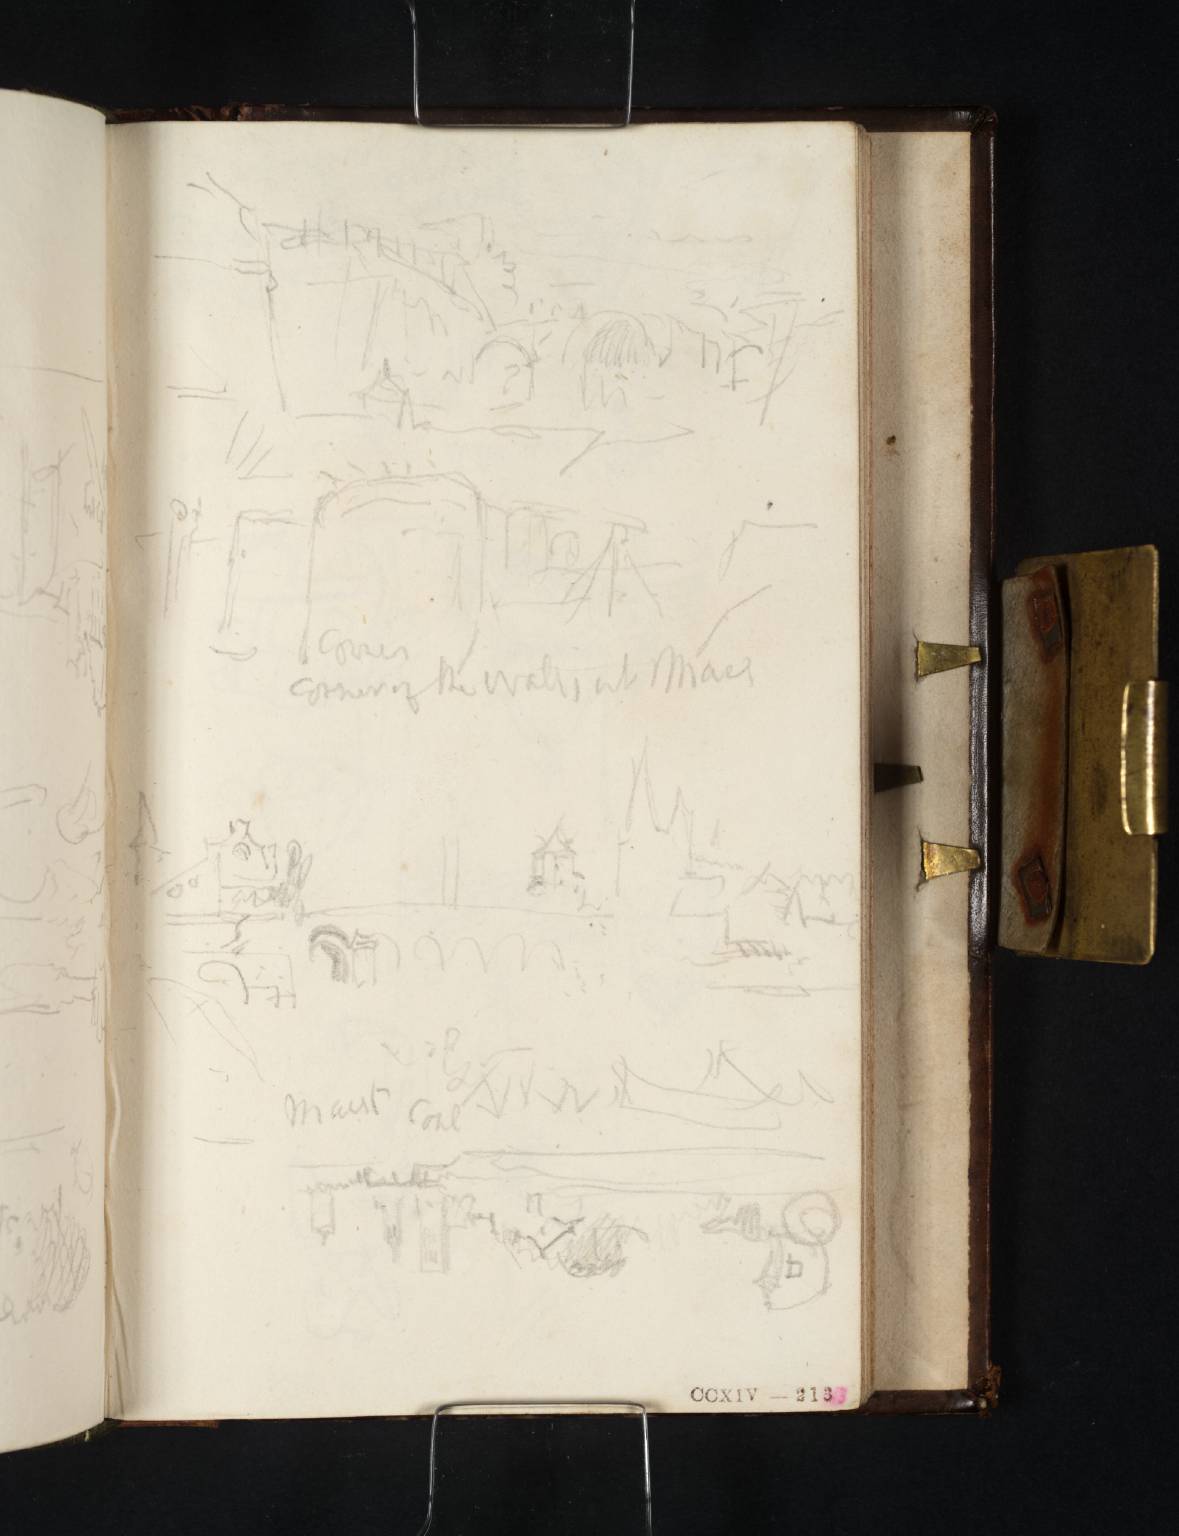 Corner
Corner of the Walls at Maes
Maest Coal
CCXIV — 213